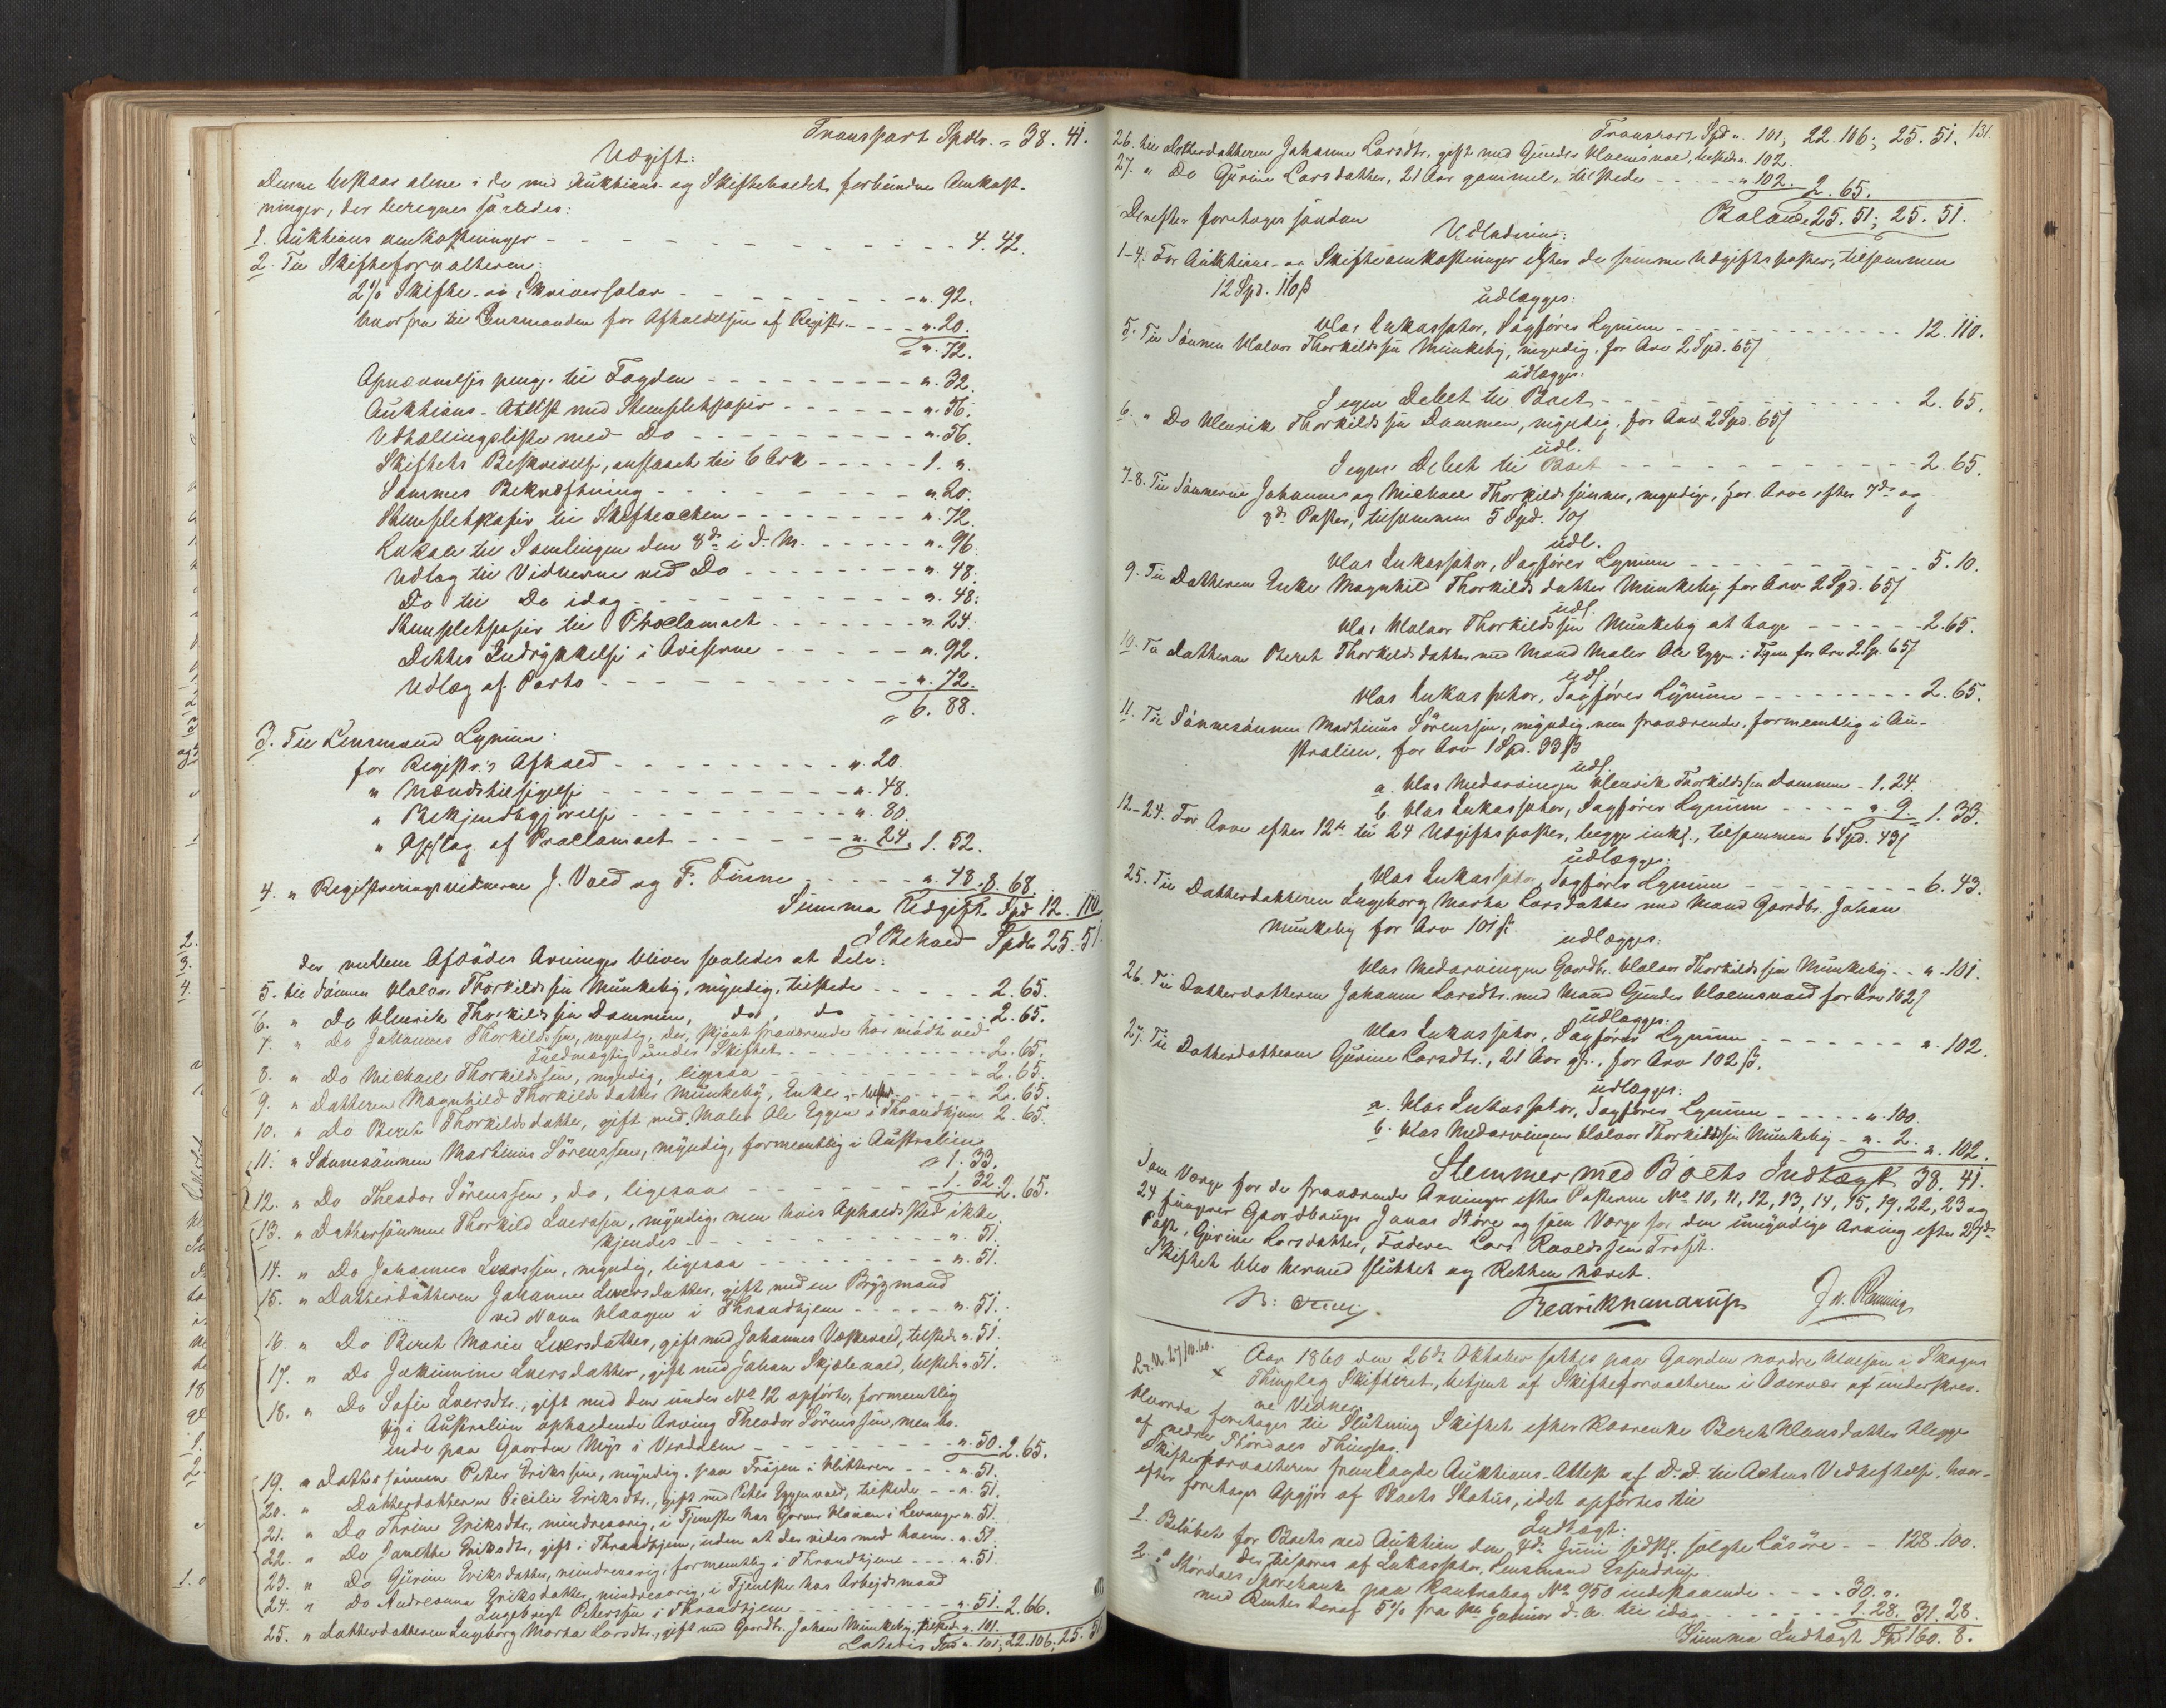 Transport Spdlr. " 38. 41.
Udgift:
Denne bestaar alene i de med Auktions- og Skifteholdet forbundne Omkost-
ninger, der beregnes saaledes:
1. Auktions omkostninger - - - 4. 42.
2. Til Skifteforvalteren:
2% Skifte- og Skriversalær - - - ". 92.
hvorfra til Lensmanden for Afholdelsen af Registr. - - - ". 20.
" ". 72.
Opnævnelses penge til Fogden - - - ". 32.
Auktions-Attest med Stempletpapir - - - ". 36.
Udhallingsliste med Do - - - ". 36.
Skiftets Beskrivelse, anslaaet til 6 Ark - - - 1. ".
Sammes Bekræftning - - - ". 20.
Stempletpapir til Skifteacten - - - ". 72.
Lokale til Samlingen den 8de i d. M. - - - ". 96.
Udlæg til Vidnerne ved Do - - - ". 48.
Do til Do idag - - - ". 48.
Stempletpapir til Proclamaet - - - ". 24.
Dettes Indrykkelse i Aviserne - - - ". 92.
Udlæg af Porto - - - ". 72.
" 6. 88.
3. Til Lensmand Lynum:
for Registr.'s Afhold - - - ". 20.
" Mændstilsigelse - - - ". 48.
" Bekjendtgjørelse - - - ". 80.
" Opslag af Proclamaet - - - ". 24. 1. 52.
4. " Registreringsvidnerne J. Vold og F. Tinne - - - ". 48. 8. 68.
Summa Udgift Spd 12. 110.
I Behold Spdlr 25. 51.
der mellem Afdødes Arvinger bliver saaledes at dele:
5. til Sønnen Halvor Thorkildssen Munkeby, myndig, tilstede - - - 2. 65.
6. " Do Henrik Thorkildssen Dammen, do, do - - - 2. 65.
7. " Do Johannes Thorkildssen, myndig, der, skjønt fraværende har mødt ved
Fuldmægtig under Skiftet - - - 2. 65.
8. " Do Michael Thorkildssen, myndig, ligesaa - - - 2. 65.
9. " Datteren Magnhild Thorkildsdatter Munkeby, Enke, - - - 2. 65.
10. " Do Beret Thorkildsdatter, gift med Maler Ole Eggen i Throndhjem 2. 65.
11. " Sønnesønnen Martinus Sörenssen, myndig, formentlig i Australien
" 1. 33.
12. " Do Theodor Sörenssen, do, ligesaa - - - 1. 32. 2. 65.
13. " Dattersønnen Thorkild Iverssen, myndig, men hvis Opholdssted ikke
kjendes - - - ". 51.
14. " Do Johannes Iverssen, myndig, ligesaa - - - ". 51.
15. " Datterdatteren Johanna Iversdatter, gift med en Brygmand
ved Navn Haagen i Throndhjem - - - ". 51.
16. " Do Beret Maria Iversdatter, gift med Johannes Vestvold, tilstede ". 51.
17. " Do Jakumine Iversdatter, gift med Johan Skjølevold, tilstede ". 51.
18. " Do Sofie Iversdtr., gift med den under No 12 opførte, formentlig
og i Australien opholdende Arving Theodor Sörenssen, men bo-
ende paa Gaarden Myr i Verdalen - - - ". 50. 2. 65.
19. " Dattersønnen Peter Erikssen, myndig, paa Frøjen i Hitteren - - - ". 51.
20. " Datterdatteren Cecilie Eriksdtr., gift med Peter Eggenvold, tilstede - - ". 51.
21. " Do Thrine Eriksdtr., mindreaarig, i Tjeneste hos Garver Hanan i Levanger ". 51.
22. " Do Janethe Eriksdtr, gift i Thrandhjem, uden at der vides med hvem - ". 51.
23. " Do Gurine Eriksdatter, mindreaarig, formentlig i Thrandhjem - - - ". 51.
24. " Do Andreanna Eriksdatter, mindreaarig, i Tjeneste hos Arbejdsmand
Ingebrigt Peterssen i Thrandhjem - - - ". 51. 2. 66.
25. " Datterdatteren Ingeborg Marta Larsdtr., gift med Gaardbr. Johan Munkeby, tilstede ". 101.
Lateris Spd ". 101; 22. 106; 25. 51.
Transport Spd ". 101; 22. 106; 25. 51. 131.
26. til Datterdatteren Johanna Larsdtr. gift med Gunder Holmsvold, tilstede ". 102.
27. " Do Gurine Larsdatter, 21 Aar gammel, tilstede - - - ". 102. 2. 65.
Balance 25. 51; 25. 51.
Derefter foretages saadan
Udlodning:
1-4. For Auktions- og Skifteomkostninger efter de samme Udgiftsposter, tilsammen
12 Spd. 110 ß
udlægges:
Hos Inkassator, Sagfører Lynum - - - 12. 110.
5. Til Sønnen Halvor Thorkildssen Munkeby, myndig, for Arv 2 Spd. 65 ß
udlægges:
I egen Debet til Boet - - - 2. 65.
6. " Do Henrik Thorkildssen Dammen, myndig, for Arv 2 Spd. 65 ß
udl.
I egen Debet til Boet - - - 2. 65.
7-8. Til Sønnerne Johannes og Michael Thorkildssønner, myndige, for Arv efter 7de og
8de Poster, tilsammen 5 Spd. 10 ß
udl.
Hos Inkassator, Sagfører Lynum - - - 5. 10.
9. Til Datteren Enke Magnhild Thorkildsdatter Munkeby for Arv 2 Spd. 65 ß
udl.
Hos Halvor Thorkildssen Munkeby at tage - - - 2. 65.
10. Til Datteren Beret Thorkildsdatter med Mand Maler Ole Eggen i Thjem for Arv 2 Sp. 65 ß
udl.
Hos Inkassator, Sagfører Lynum - - - 2. 65.
11. Til Sønnesønnen Martinus Sörenssen, myndig, men fraværende, formentlig i Au-
stralien, for Arv 1 Spd. 33 ß
udl.
a. Hos Medarvingen Henrik Thorkildssen Dammen - 1. 24.
b. Hos Inkassator, Sagfører Lynum - - - ". 9. 1. 33.
12-24. For Arv efter 12te til 24 Udgiftsposter, begge inkl., tilsammen 6 Spd. 43 ß
udlægges:
Hos Inkassator, Sagfører Lynum - - - 6. 43.
25. Til Datterdatteren Ingeborg Marta Larsdatter med Mand Gaardbr. Johan
Munkeby for Arv 101 ß
udlægges:
Hos Medarvingen Gaardbr. Halvor Thorkildssen Munkeby - - ". 101.
26. Til Datterdatteren Johanna Larsdtr. med Mand Gunder Holmsvold for Arv 102 ß
udlægges:
Hos Inkassator, Sagfører Lynum - - - ". 102.
27. Til Datterdatteren Gurine Larsdtr., 21 Aar gl., for Arv 102 ß.
udlægges:
a. Hos Inkassator, Sagfører Lynum - - - ". 100.
b. Hos Medarvingen Halvor Thorkildssen Munkeby - ". 2. ". 102.
Stemmer med Boets Indtægt 38. 41.
Som Værge for de fraværende Arvinger efter Posterne No 10, 11, 12, 13, 14, 15, 19, 22, 23 og
24 fungerer Gaardbruger Jonas Støre og som Værge for den umyndige Arving efter 27de
Post, Gurine Larsdatter, Faderen Lars Roaldssen Trøst.
Skiftet blev hermed sluttet og Retten hævet.
Fredrik J. N. Rønning
L. N. 27/10. 60.
Aar 1860 den 26de Oktober sattes paa Gaarden nordre i Skogns
Thinglag Skifteret, betjent af Skifteforvalteren i Overvær af underskrev-
ne Vidner.
Hvorda foretages til Slutning Skiftet efter Kaarenke Beret Hansdatter Hegge
af nedre Størdals Thinglag.
Skifteforvalteren fremlagde Auktions-Attest af D. D. til Actens Vedheftelse, hvor-
efter foretages Opgjør af Boets Status, idet opførtes til
Indtægt:
1. Beløbet for Boets ved Auktion den 4de Juni sidstl. solgte Løsøre - - 128. 100.
der tilsvares af Inkassator, Lensmand Essendrup.
2. I Størdals Sparebank paa Kontrabog No 950 indestaaende - - - 30. ".
med Renter deraf 5% fra 1ste Januar d. A. til idag - - - 1. 28. 31. 28.
Summa Indtægt Spd 160. 8.